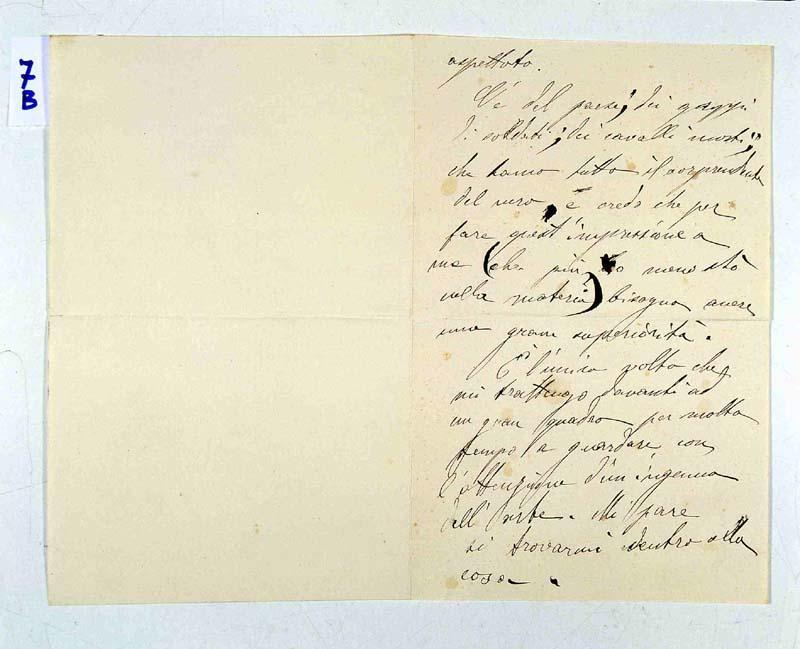 7
B
aspettato.
C'è del paese; dei gruppi
di soldati; dei cavalli morti;
che hanno tutto il sorprendente
del vero, e credo che per
fare quest'impressione a
me (che più o meno stò
nella materia) bisogna avere
una gran superiorità.
È l'unica volta che
mi trattengo davanti ad
un gran quadro per molto
tempo a guardare con
l'attenzione d'un ingenuo
dell'arte. Mi pare
di trovarmi dentro alla
cosa.